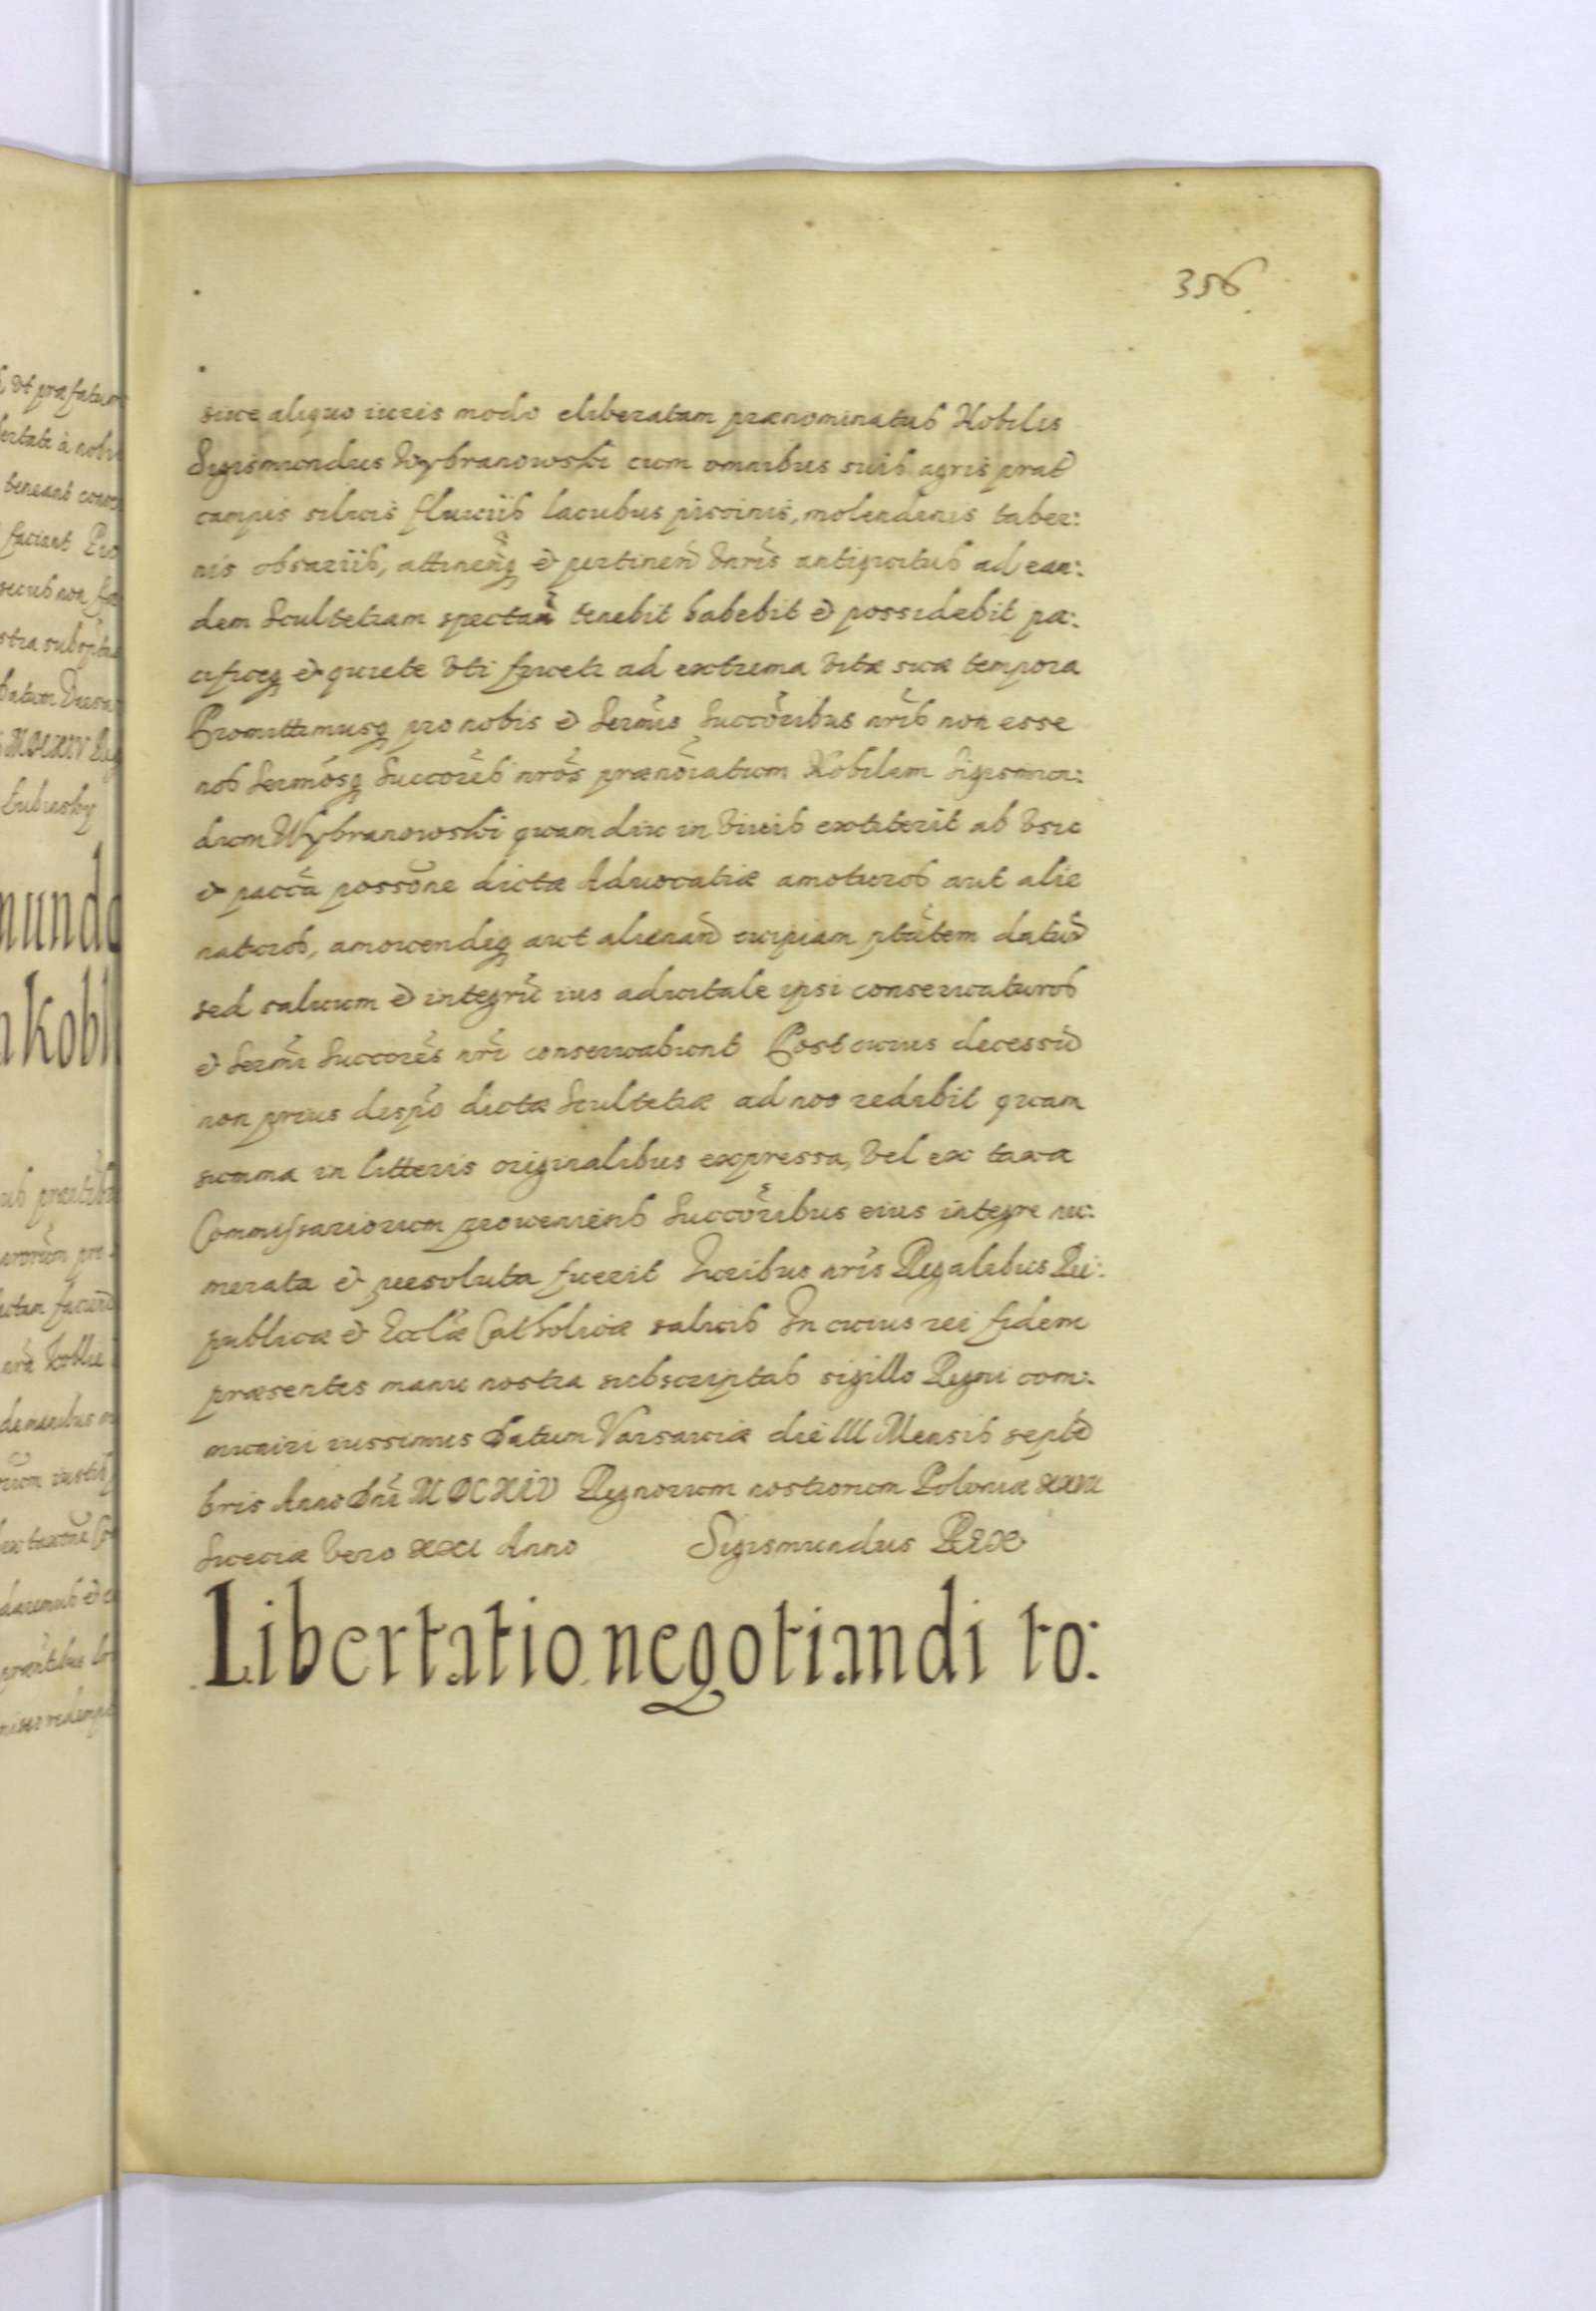 356
siue aliquo iuris modo eliberatam prænominatus Nobilis
Sigismundus Wybranowski cum omnibus suis agris prat̃
campis siluis fluuiis lacubus piscinis, molendinis taber:
nis obsariis, attinen̄q₃ et pertinen̄ vniūs antiquitus ad ean:
dem Scultetiam spectan̄ tenebit habebit et possidebit pa:
cificeq₃ et quiete vti frueti ad extrema vitæ suæ tempora
Promittimusq₃ pro nobis et Sermis Succoribus nr̄is non esse
nos Sermosq₃ Succores nr̄os prænoīatum Nobilem Sigismun:
dum Wybranowski quamdiu in viuis extiterit ab vsu
et paccā possōne dictæ Aduocatiæ amoturos aut alie
naturos, amouendiq₃ aut alienan̄d cuipiam ptātem datūr
sed saluum et integrū ius aduitale ipsi conseruaturos
et Sermi Succores nr̄i conseruabunt Post cuius decessū
non prius dispō dictæ Scultetiæ ad nos redibit quam
summa in litteris originalibus expressa, vel ex taxa
Commissariorum proueniens Succoribus eius integre nu:
merata et persoluta fuerit Iuribus nr̄is Regalibus Rei:
publicæ et Eccl̄æ Catholicæ saluis In cuius rei fidem
præsentes manu nostra subscriptas sigillo Regni com:
muniri iussimus Datum Varsauiæ die III Mensis septē
bris Anno Dn̄i MDCXIV Regnorum nostrorum Poloniæ XXVII
Sueciæ vero XXI Anno Sigismundus Rex
Libertatio negotiandi to:
ut præfatum
à nobis
teneant
faciant
secus non
MDCXIV
Lubiesky
mundo
Kobl